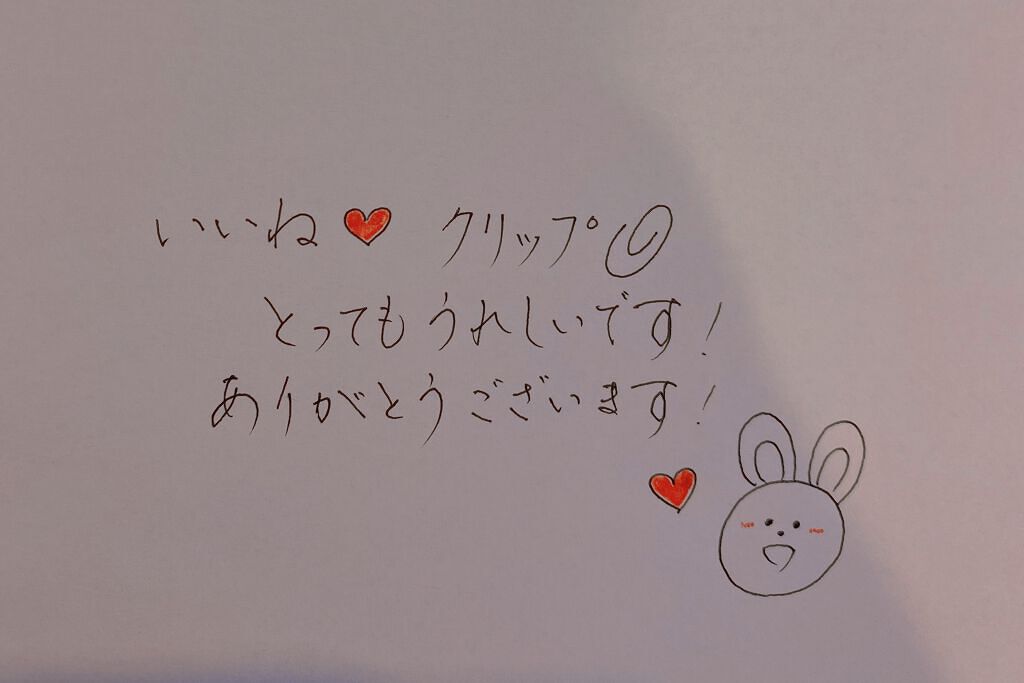 いいね❤ クリップ📎
とってもうれしいです！
ありがとうございます！